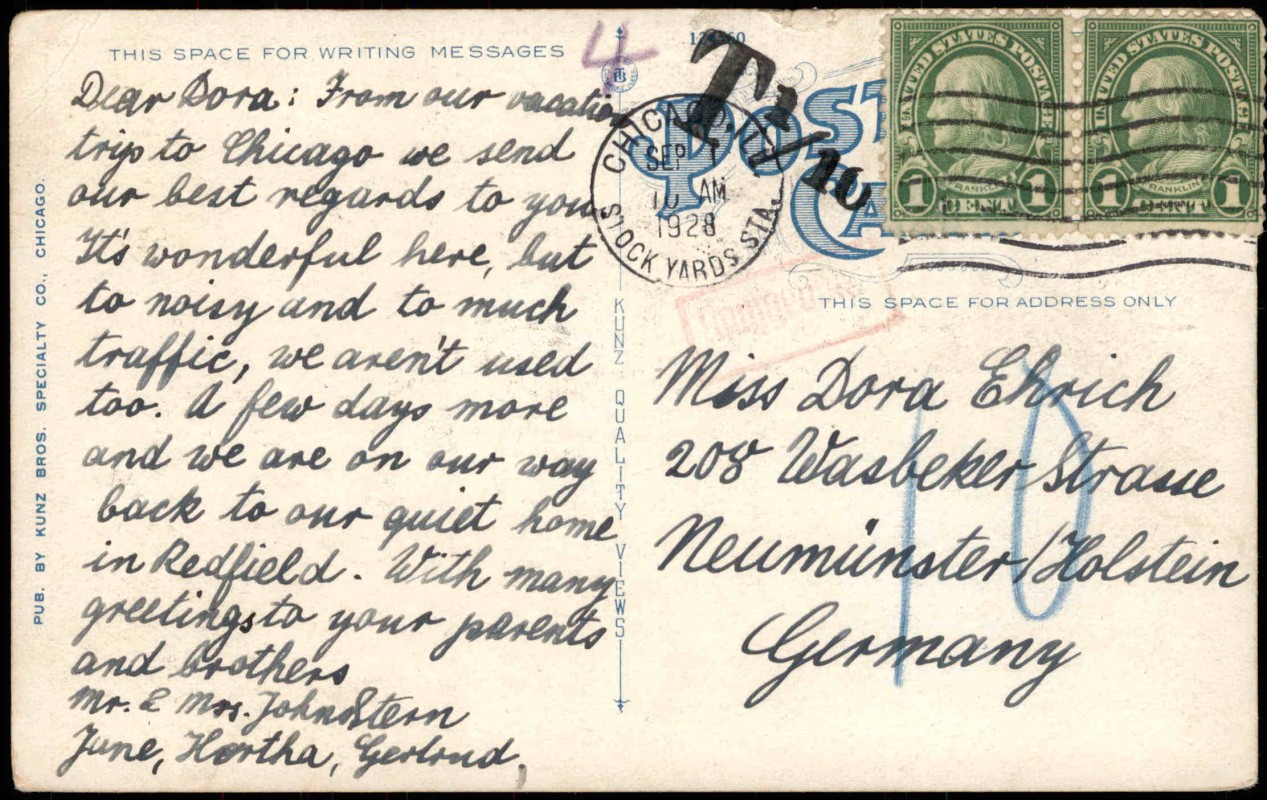 THIS SPACE FOR WRITING MESSAGES
Dear Dora: From our vacation
trip to Chicago we send
our best regards to you
It's wonderful here, but
to noisy and to much
traffic, we aren't used
too. A few days more
and we are on our way
back to our quiet home
in Redfield. With many
greetings to your parents
and brothers
Mr. & Mrs. John Stern
June, Hertha, Gertrud.
PUB. BY KUNZ BROS. SPECIALTY CO., CHICAGO.
4
KUNZ QUALITY VIEWS
POST
CA
T 1/10
CHICAGO, ILL
SEP 1
10 AM
1928
STOCK YARDS STA.
UNITED STATES POSTAGE
FRANKLIN
1 1
UNITED STATES POSTAGE
FRANKLIN
1 1
THIS SPACE FOR ADDRESS ONLY
Miss Dora Ehrich
208 Wasbeker Strasse
Neumünster/Holstein
Germany
10